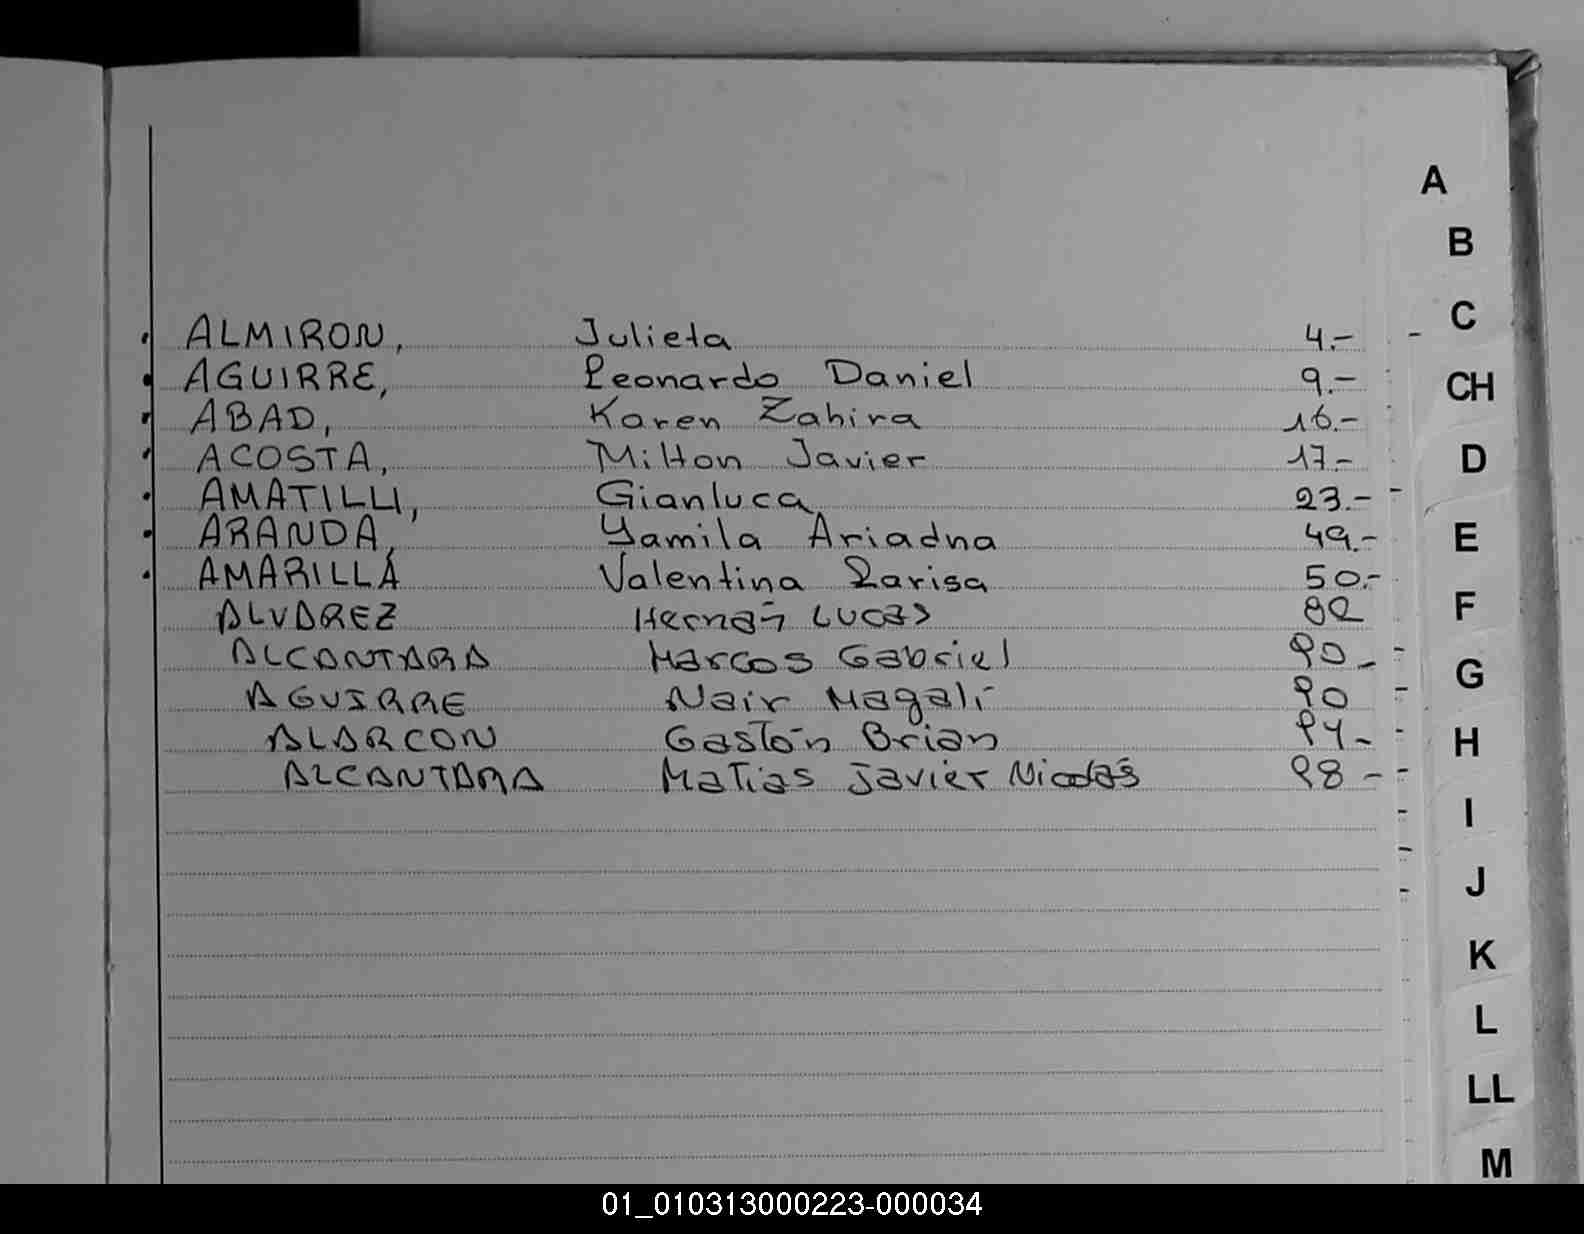 A
B
C
ALMIRON, Julieta 4.-
AGUIRRE, Leonardo Daniel 9.-
CH
ABAD, Karen Zahira 16.-
ACOSTA, Milton Javier 17.-
D
AMATILLI, Gianluca 23.-
ARANDA, Yamila Ariadna 49.-
E
AMARILLA Valentina Larisa 50.-
ALVAREZ Hernán Lucas 82
F
ALCANTARA Marcos Gabriel 90-
G
AGUIRRE Nair Magalí 90
ALARCON Gastón Brian 94-
H
ALCANTARA Matias Javier Nicolás 98-
I
J
K
L
LL
M
01_010313000223-000034